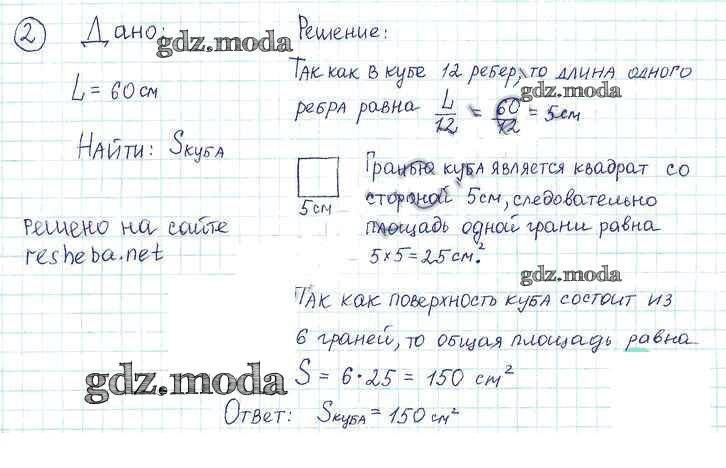 2 Дано:
gdz.moda
L = 60 см
Найти: Sкуба
решено на сайте
resheba.net
Решение:
Так как в кубе 12 ребер, то длина одного
gdz.moda
ребра равна L/12 = 60/12 = 5см
5см
Гранью куба является квадрат со
стороной 5см, следовательно
площадь одной грани равна
5×5=25см².
gdz.moda
Так как поверхность куба состоит из
6 граней, то общая площадь равна
gdz.moda
S = 6·25 = 150 см²
Ответ: Sкуба = 150см²